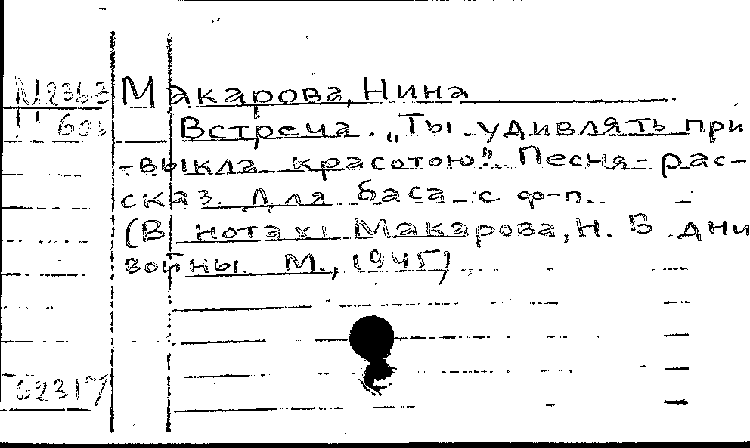 М2363 Макарова, Нина
Встреча. „Ты удивлять при
-выкла красотою". Песня-рас-
сказ. Для баса с ф-п.
(В нотах: Макарова, Н. В дни
войны. М., 1945)